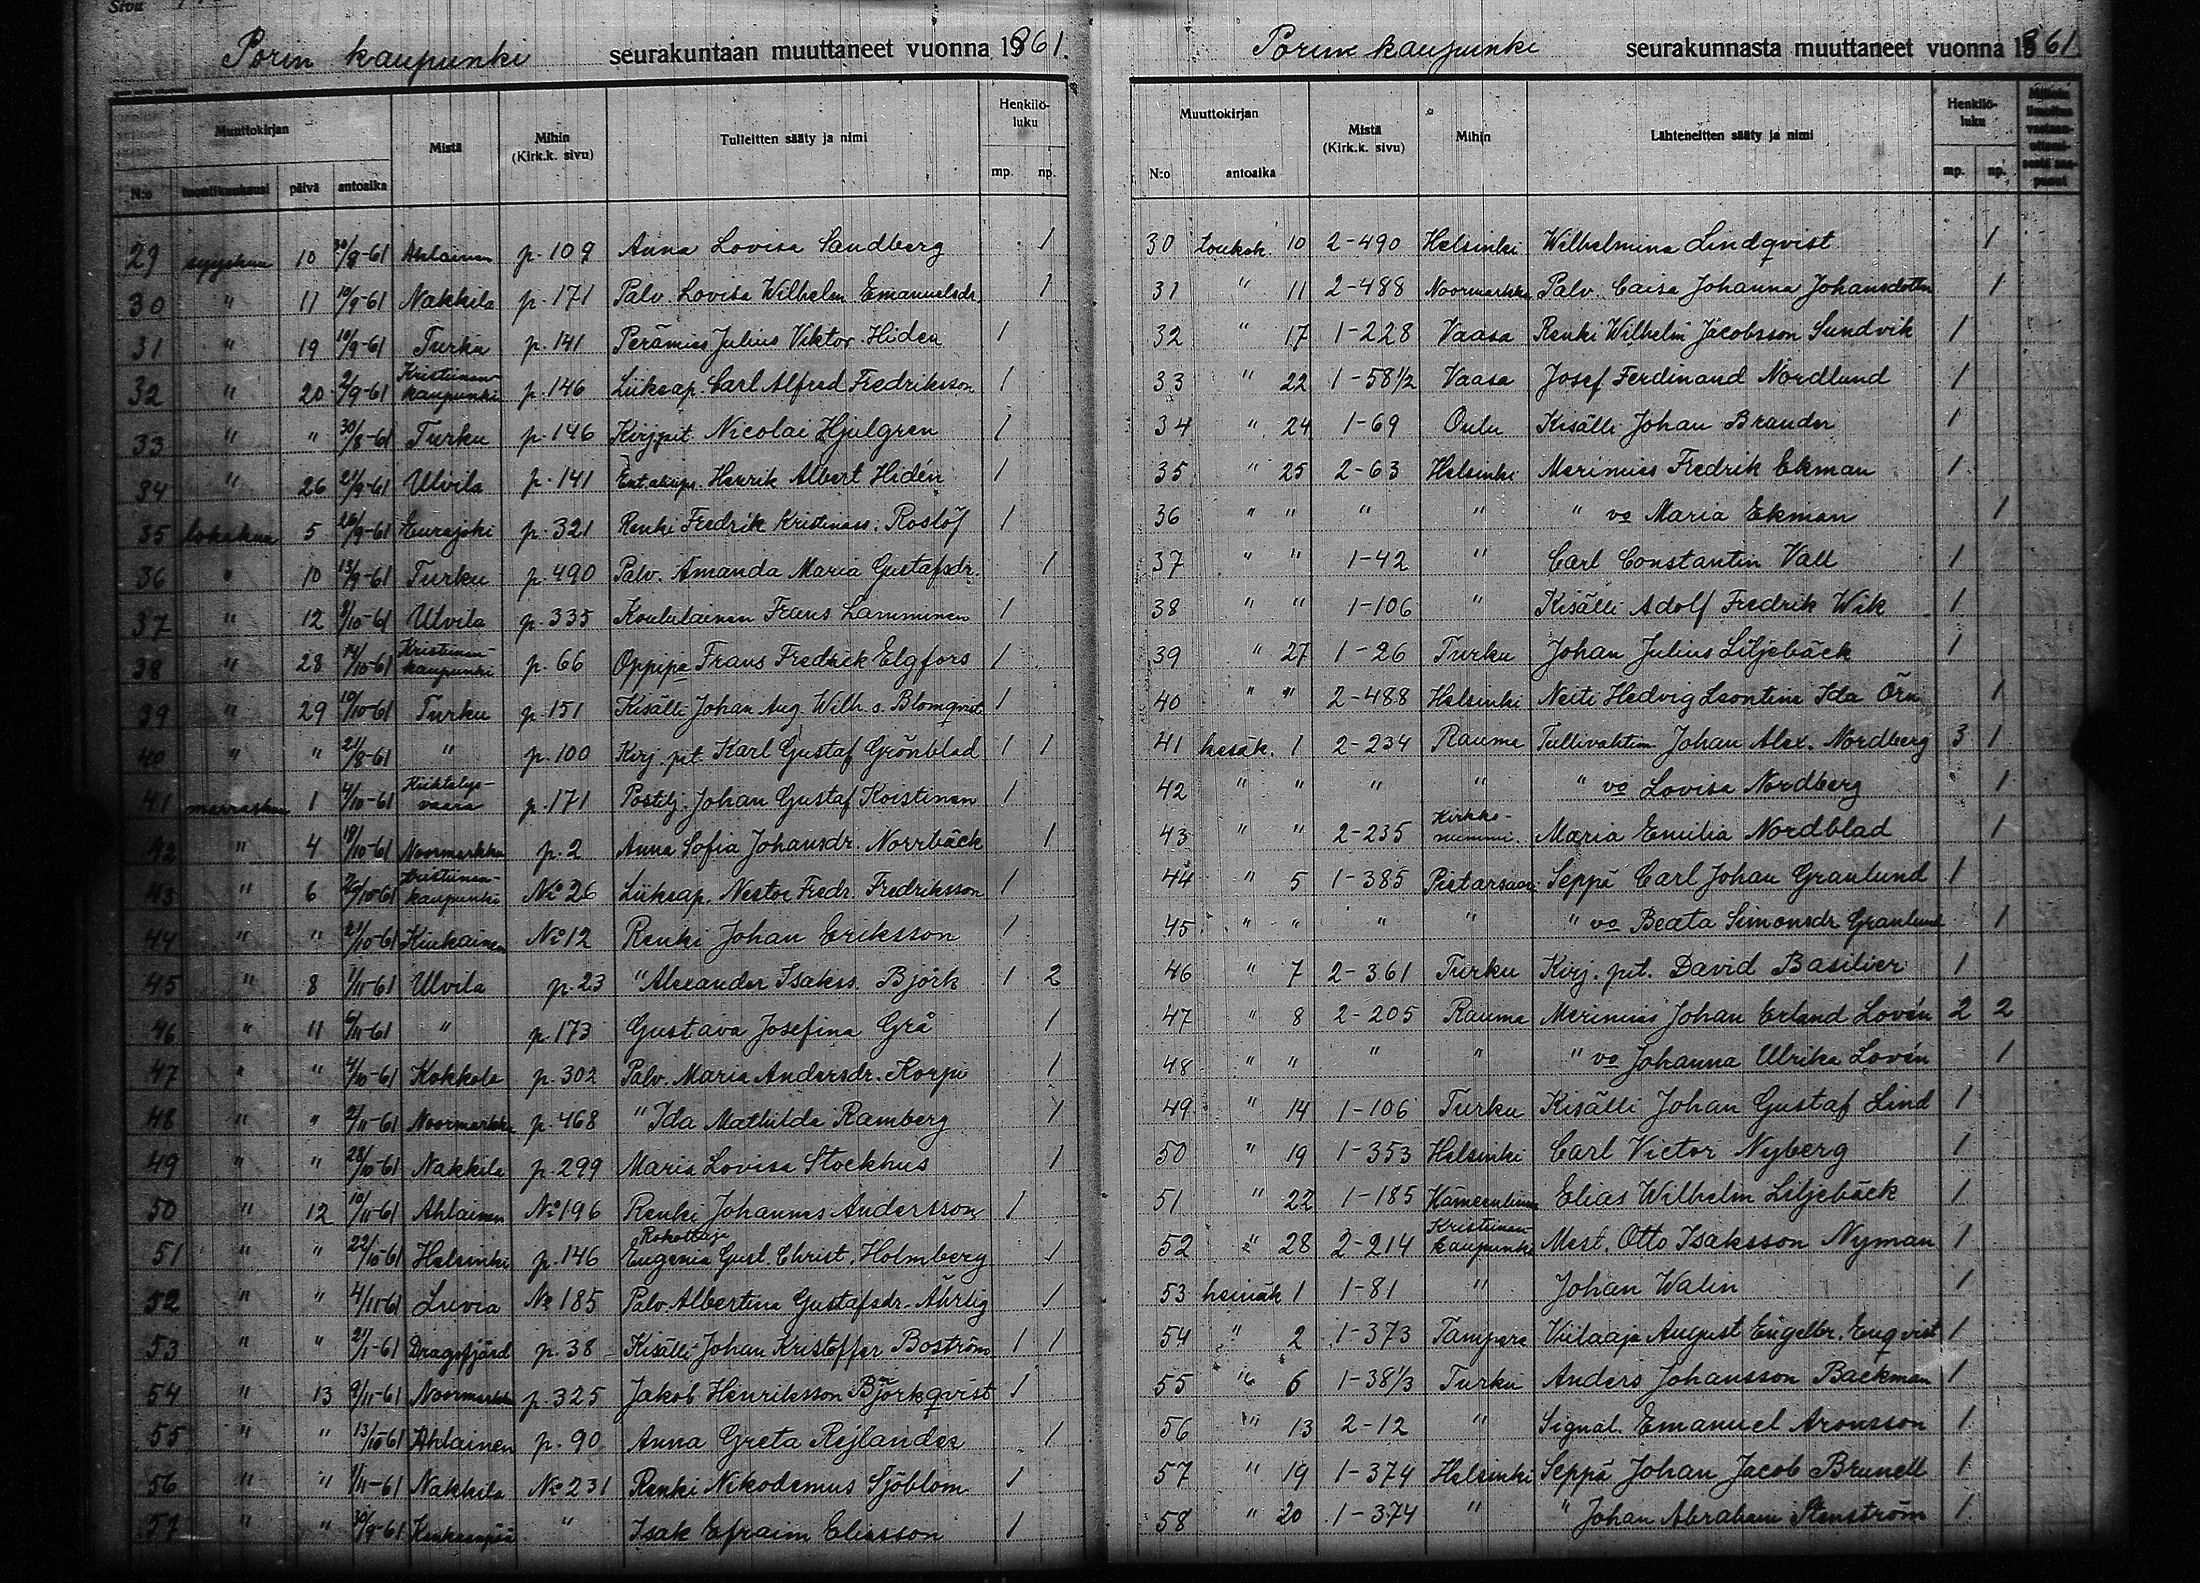 Sivu
Porin kaupunki seurakuntaan muuttaneet vuonna 1861.
Muuttokirjan Mistä Mihin (Kirk.k. sivu) Tulleitten sääty ja nimi Henkilö-luku
N:o tuontikuukausi päivä antoaika mp. np.
29 syyskuu 10 30/8-61 Ahlainen p. 109 Anna Lovisa Sandberg 1
30 " 11 10/9-61 Nakkila p. 171 Palv. Lovisa Wilhelm. Emanuelsdr. 1
31 " 19 10/9-61 Turku p. 141 Perämies Julius Viktor Hiden 1
32 " 20 2/9-61 Kristiinan-kaupunki p. 146 Liikeap. Carl Alfred Fredriksson 1
33 " " 30/8-61 Turku p. 146 Kirjpit Nicolai Hjulgren 1
34 " 26 21/9-61 Ulvila p. 141 Henrik Albert Hidén 1
35 lokakuu 5 26/9-61 Eurajoki p. 321 Renki Fredrik Kristinass. Roslöf 1
36 " 10 13/9-61 Turku p. 490 Palv. Amanda Maria Gustafsdr. 1
37 " 12 8/10-61 Ulvila p. 335 Koululainen Frans Lamminen 1
38 " 28 14/10-61 Kristiinan-kaupunki p. 66 Oppipa Frans Fredrik Elgfors 1
39 " 29 10/10-61 Turku p. 151 Kisälli Johan Aug. Wilh. s. Blomqvist 1
40 " " 21/8-61 " p. 100 Kirj. pit. Karl Gustaf Grönblad 1 1
41 marraskuu 1 4/10-61 Kiihtelys-vaara p. 171 Postilj. Johan Gustaf Koistinen 1
42 " 4 18/10-61 Noormarkku p. 2 Anna Sofia Johansdr. Norrbäck 1
43 " 6 /10-61 Kristiinan-kaupunki No 26 Liikeap. Nestor Fredr. Fredriksson 1
44 " " 21/10-61 Kiukainen No 12 Renki Johan Eriksson 1
45 " 8 1/11-61 Ulvila p. 23 " Alexander Isakss. Björk 1 2
46 " 11 6/11-61 " p. 173 Gustava Josefina Grå 1
47 " " 4/10-61 Kokkola p. 302 Palv. Maria Andersdr. Korpi 1
48 " " 2/11-61 Noormarkku p. 468 " Ida Mathilda Ramberg 1
49 " " 28/10-61 Nakkila p. 299 Maria Lovisa Stockhus 1
50 " 12 10/11-61 Ahlainen No 196 Renki Johannes Andersson 1
51 " " 22/10-61 Helsinki p. 146 Rokottaja Eugenia Gust. Christ. Holmberg 1
52 " " 4/11-61 Luvia No 185 Palv. Albertina Gustafsdr. Ährlig 1
53 " " 21/1-61 Dragsfjärd p. 38 Kisälli Johan Kristoffer Boström 1 1
54 " 13 9/11-61 Noormarkku p. 325 Jakob Henriksson Björkqvist 1
55 " " 13/10-61 Ahlainen p. 90 Anna Greta Rejlander 1
56 " " /11-61 Nakkila No 231 Renki Nikodemus Sjöblom 1
57 " " 30/9-61 Kankaanpää " Isak Efraim Eliasson 1
Porin kaupunki seurakunnasta muuttaneet vuonna 1861
Muuttokirjan Mistä (Kirk.k. sivu) Mihin Lähteneitten sääty ja nimi Henkilö-luku
N:o antoaika mp. np.
30 toukok. 10 2-490 Helsinki Wilhelmina Lindqvist 1
31 " 11 2-488 Noormarkku Palv. Caisa Johanna Johansdotter 1
32 " 17 1-228 Vaasa Renki Wilhelm Jacobsson Sundvik 1
33 " 22 1-58 1/2 Vaasa Josef Ferdinand Nordlund 1
34 " 24 1-69 Oulu Kisälli Johan Brander 1
35 " 25 2-63 Helsinki Merimies Fredrik Ekman 1
36 " " " " " vo Maria Ekman 1
37 " " 1-42 " Carl Constantin Vall 1
38 " " 1-106 " Kisälli Adolf Fredrik Wik 1
39 " 27 1-26 Turku Johan Julius Liljebäck 1
40 " " 2-488 Helsinki Neiti Hedvig Leontine Ida Örn 1
41 kesäk. 1 2-234 Rauma Tullivahtim. Johan Alex. Nordberg 3 1
42 " " " " " vo Lovisa Nordberg 1
43 " " 2-235 Kirkko-nummi. Maria Emilia Nordblad 1
44 " 5 1-385 Pietarsaari Seppä Carl Johan Granlund 1
45 " " " " " vo Beata Simonsdr Granlund 1
46 " 7 2-361 Turku Kirj. pit. David Basilier 1
47 " 8 2-205 Rauma Merimies Johan Erland Lovén 2 2
48 " " " " " vo Johanna Ulrika Lovén 1
49 " 14 1-106 Turku Kisälli Johan Gustaf Lind 1
50 " 19 1-353 Helsinki Carl Victor Nyberg 1
51 " 22 1-185 Hämeenlinna Elias Wilhelm Liljebäck 1
52 " 28 2-214 Kristiinan-kaupunki Mest. Otto Isaksson Nyman 1
53 heinäk 1 1-81 " Johan Walin 1
54 " 2 1-373 Tampere Viilaaja August Engelbr. Enqvist 1
55 " 6 1-38 1/3 Turku Anders Johansson Backman 1
56 " 13 2-12 " Signal. Emanuel Aronsson 1
57 " 19 1-374 Helsinki Seppä Johan Jacob Brunell 1
58 " 20 1-374 " " Johan Abraham Stenström 1